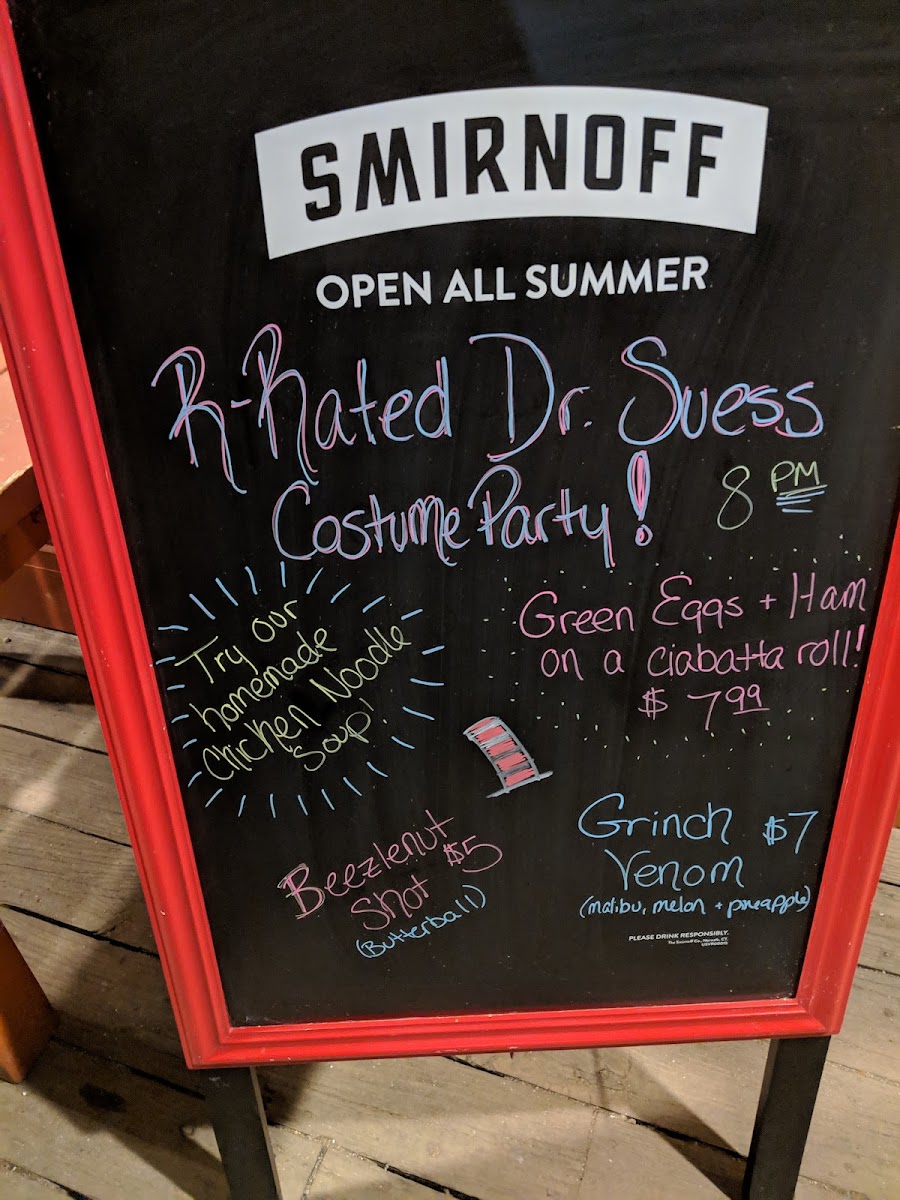 SMIRNOFF
OPEN ALL SUMMER
R-Rated Dr. Suess
Costume Party!
8 PM
Try our
homemade
Chicken Noodle
Soup!
Green Eggs + Ham
on a ciabatta roll!
$ 7 99
Beezlenut
Shot $5
(Butterball)
Grinch $7
Venom
(malibu, melon + pineapple)
PLEASE DRINK RESPONSIBLY.
The Smirnoff Co., Norwalk, CT.